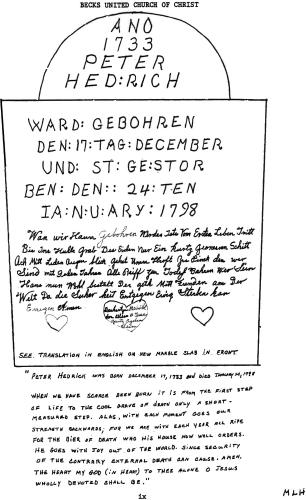 BECKS UNITED CHURCH OF CHRIST
ANO
1733
PETER
HED:RICH
WARD: GEBOHREN
DEN:17:TAG:DECEMBER
UND: ST: GE:STOR
BEN: DEN:: 24: TEN
IA:N:U:ARY: 1798
Wan wir Kaum Gebohren Werden Ists Vom Ersten Leben Tritt
Bis Ins Kulle Grab Der Erden Nur Ein Kurtz Gemessen Schitt
Ach Mitt Jeden Augen
Sind mit Jahren Alle Reiff Zur
Hans nun Wohl bestelt Der geh Mitt Freuden aus Der
Welt Da die Sicher heit Entgegen Ewig Sterben kan
Emegen Amen
SEE TRANSLATION IN ENGLISH ON NEW MARBLE SLAB IN FRONT
"PETER HEDRICK WAS BORN DECEMBER 17, 1733 AND DIED JANUARY 24, 1798
WHEN WE HAVE SCARCE BEEN BORN IT IS FROM THE FIRST STEP
OF LIFE TO THE COOL GRAVE OF DEATH ONLY A SHORT-
MEASURED STEP. ALAS, WITH EACH MOMENT GOES OUR
STRENGTH BACKWARDS; FOR WE ARE WITH EACH YEAR ALL RIPE
FOR THE BIER OF DEATH WHO HIS HOUSE NOW WELL ORDERS.
HE GOES WITH JOY OUT OF THE WORLD. SINCE SECURITY
OF THE CONTRARY EXTERNAL DEATH CAN CAUSE. AMEN.
THE HEART MY GOD (IN HEAD) TO THEE ALONE O JESUS
WHOLLY DEVOTED SHALL BE."
MLH
ix